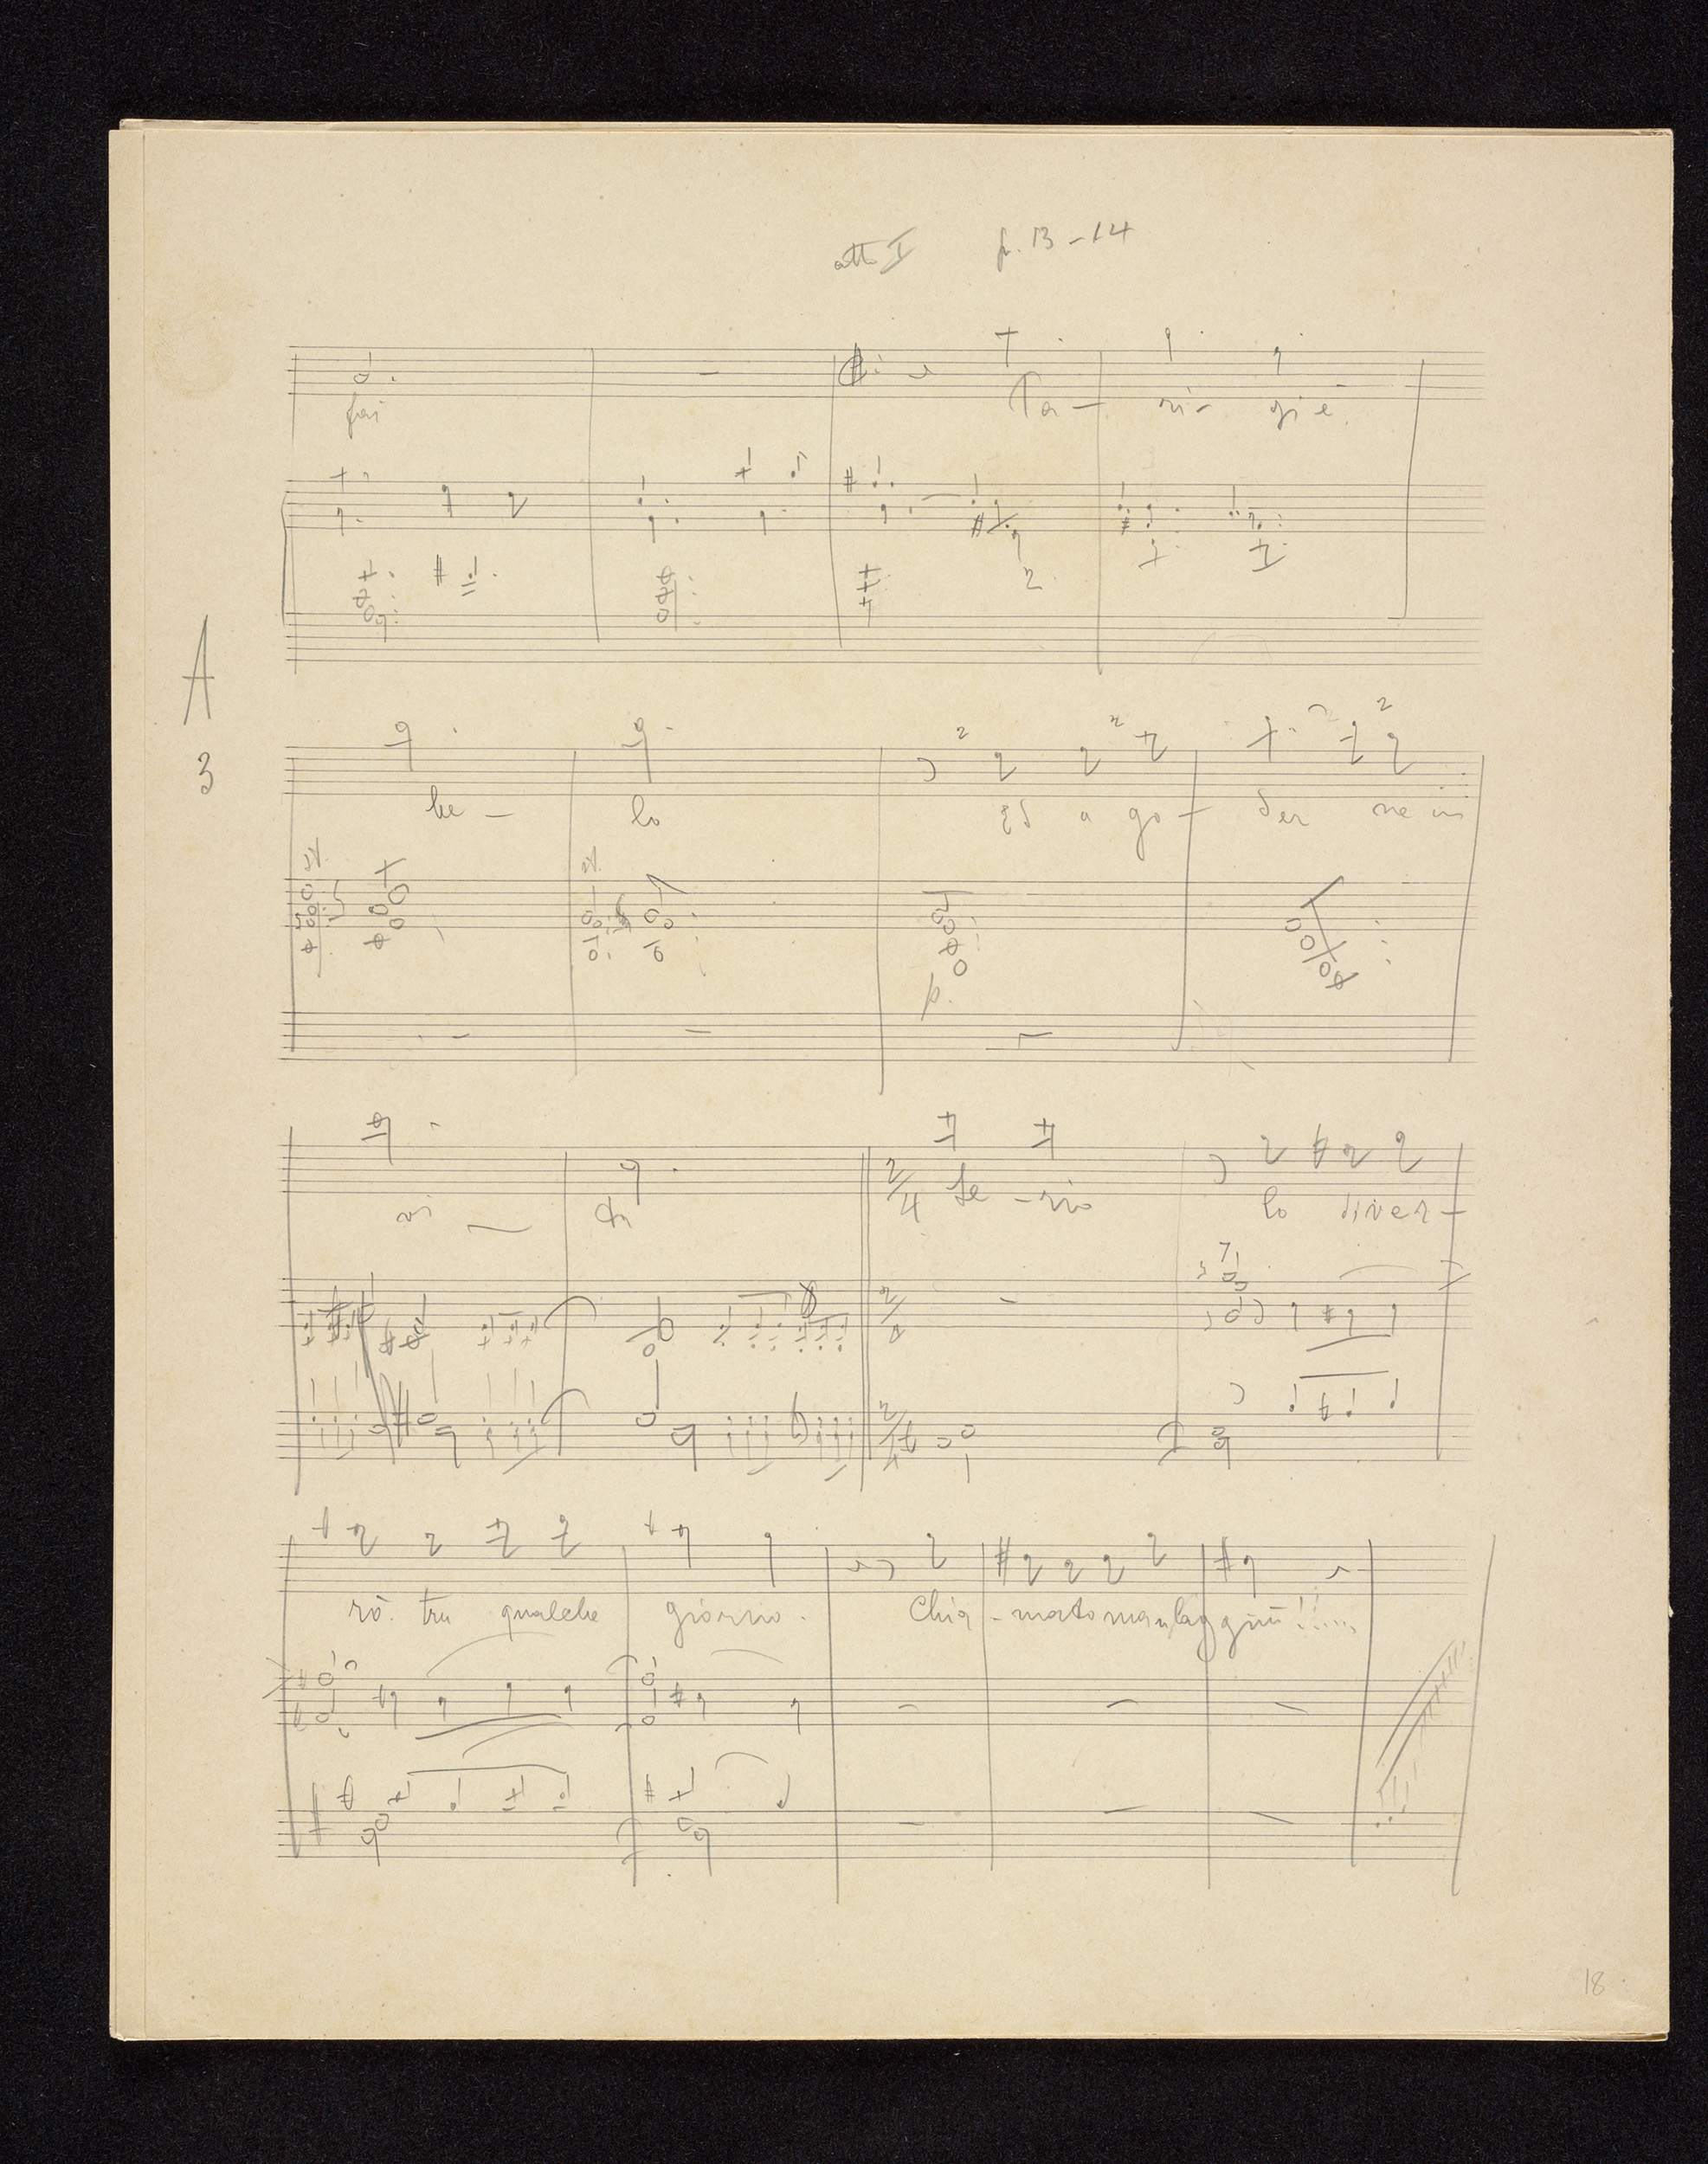 atto I p. 13-14
fai Pa- ri- gi è
A
3
bello Ed a go- der ne in
2/4 se-rio lo diver-
rò. tru qualche giorno. Chia-matemanlaggiù!!....
18